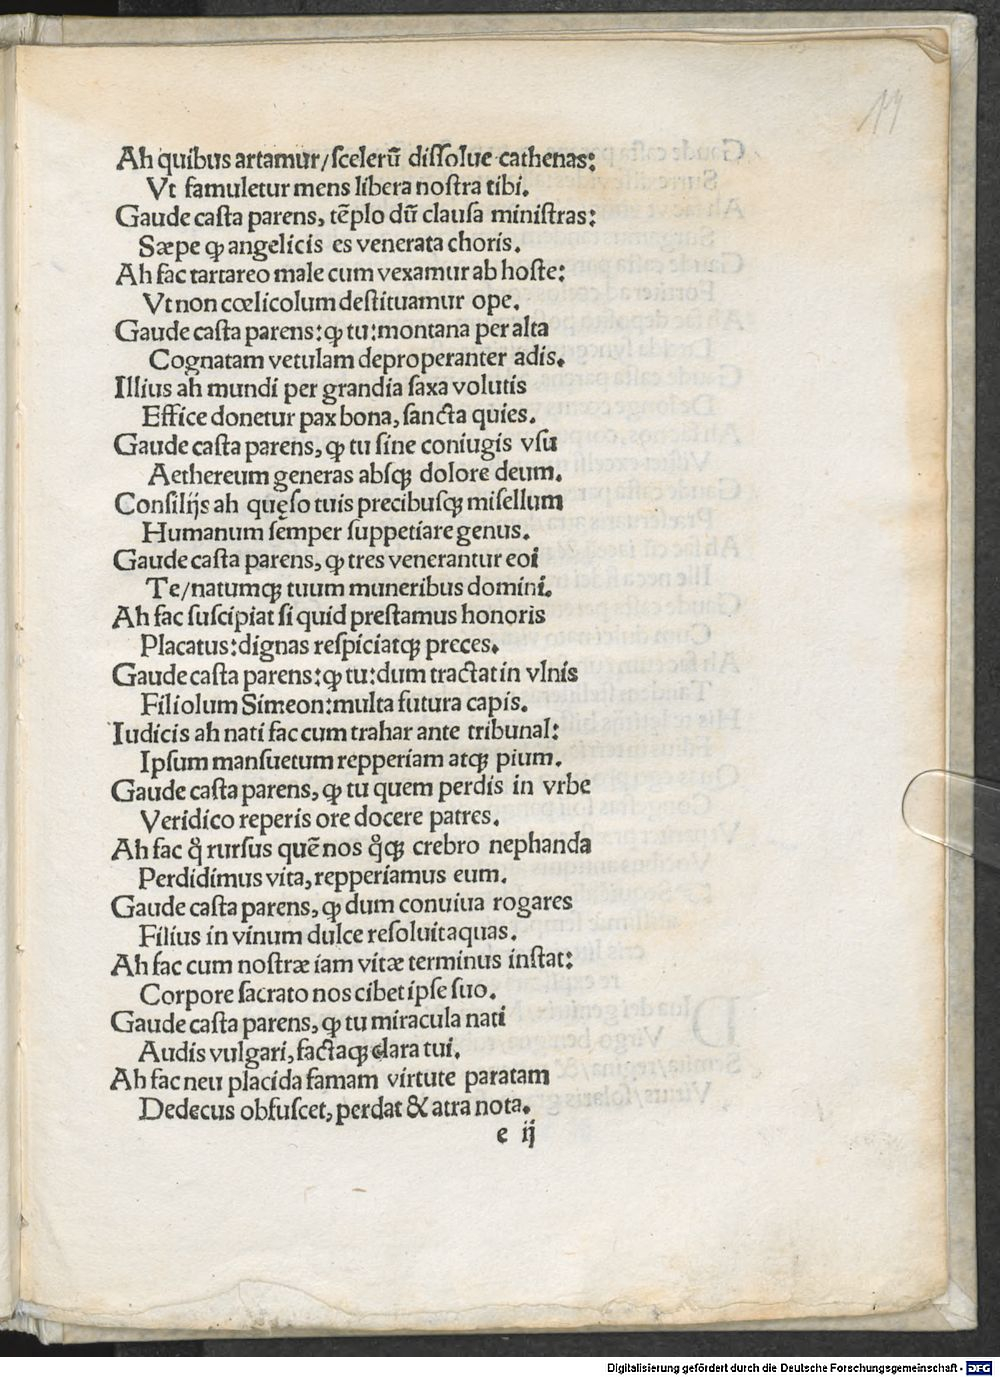 19
Ah quibus artamur/scelerū dissolue cathenas:
Vt famuletur mens libera nostra tibi.
Gaude casta parens, tēplo dū clausa ministras:
Sæpe ꝙ angelicis es venerata choris.
Ah fac tartareo male cum vexamur ab hoste:
Vt non cœlicolum destituamur ope.
Gaude casta parens:ꝙ tu:montana per alta
Cognatam vetulam deproperanter adis.
Illius ah mundi per grandia saxa volutis
Effice donetur pax bona, sancta quies.
Gaude casta parens, ꝙ tu sine coniugis vsu
Aethereum generas absqꝫ dolore deum.
Consilijs ah quęso tuis precibusqꝫ misellum
Humanum semper suppetiare genus.
Gaude casta parens, ꝙ tres venerantur eoi
Te/natumqꝫ tuum muneribus domini.
Ah fac suscipiat si quid prestamus honoris
Placatus:dignas respiciatqꝫ preces.
Gaude casta parens:ꝙ tu:dum tractat in vlnis
Filiolum Simeon:multa futura capis.
Iudicis ah nati fac cum trahar ante tribunal:
Ipsum mansuetum repperiam atqꝫ pium.
Gaude casta parens, ꝙ tu quem perdis in vrbe
Veridico reperis ore docere patres.
Ah fac rursus quē nos crebro nephanda
Perdidimus vita, repperiamus eum.
Gaude casta parens, ꝙ dum conuiua rogares
Filius in vinum dulce resoluit aquas.
Ah fac cum nostræ iam vitæ terminus instat:
Corpore sacrato nos cibet ipse suo.
Gaude casta parens, ꝙ tu miracula nati
Audis vulgari, factaqꝫ clara tui.
Ah fac neu placida famam virtute paratam
Dedecus obfuscet, perdat & atra nota.
e ij
Digitalisierung gefördert durch die Deutsche Forschungsgemeinschaft - DFG